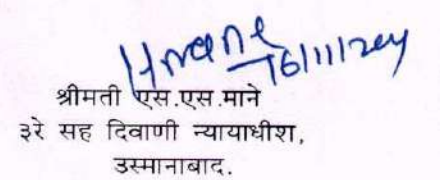 16/11/2024
श्रीमती एस.एस.माने
३रे सह दिवाणी न्यायाधीश,
उस्मानाबाद.